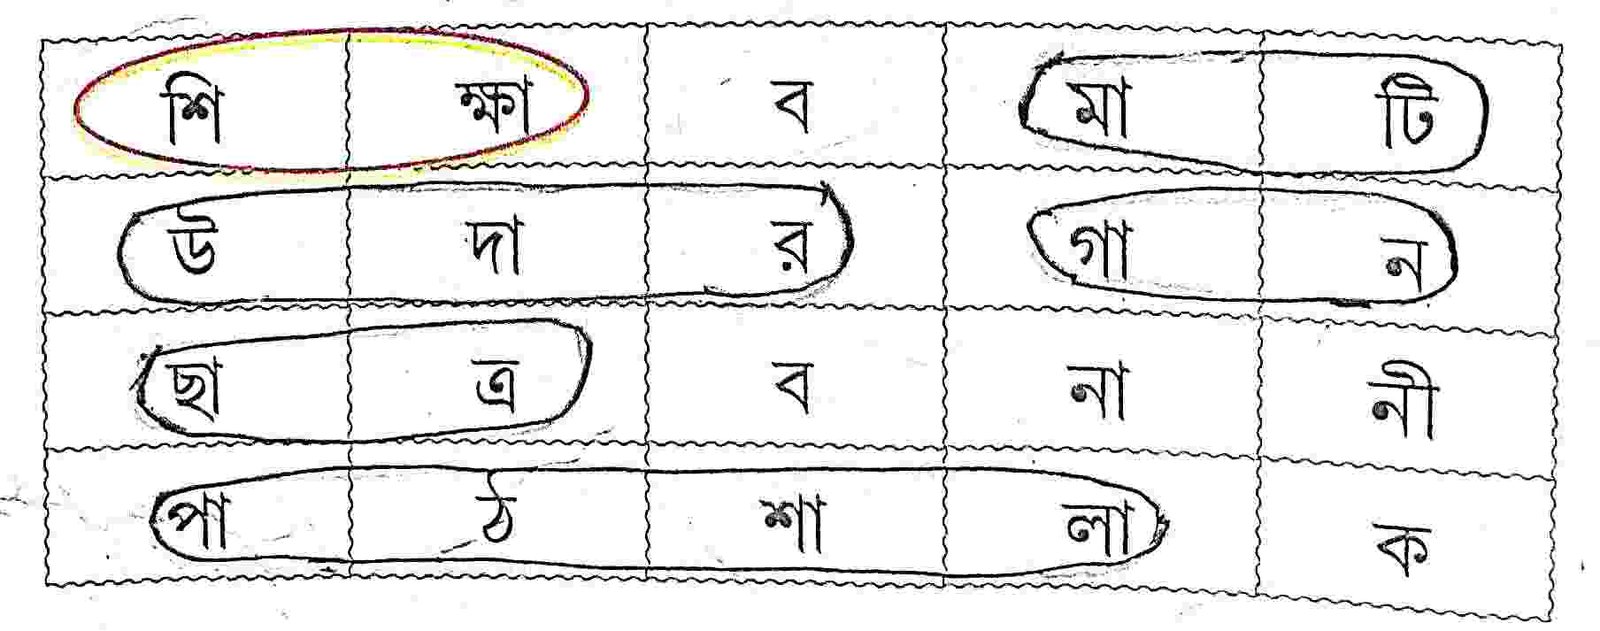 শি ক্ষা ব মা টি
উ দা র গা ন
ছা ত্র ব না নী
পা ঠ শা লা ক